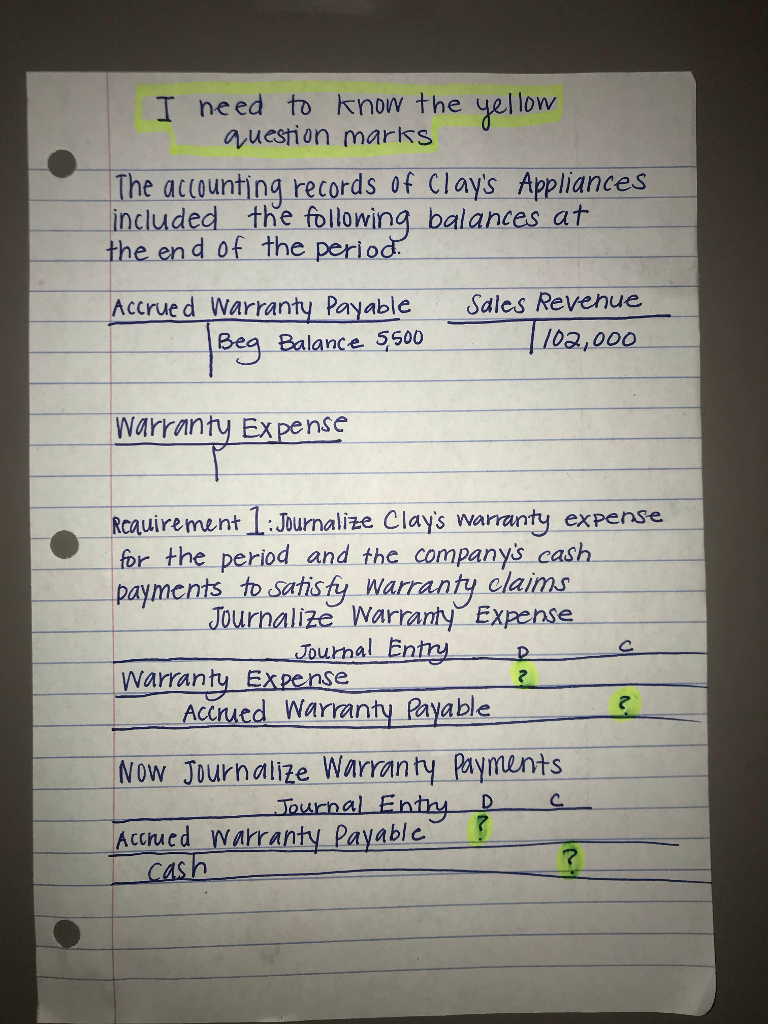 I need to know the yellow
question marks
The accounting records of Clay's Appliances
included the following balances at
the end of the period.
Accrued Warranty Payable Sales Revenue
Beg Balance 5,500 102,000
Warranty Expense
Requirement 1: Journalize Clay's warranty expense
for the period and the company's cash
payments to satisfy warranty claims
Journalize Warranty Expense
Journal Entry D C
Warranty Expense ?
Accrued Warranty Payable ?
Now Journalize Warranty Payments
Journal Entry D C
Accrued Warranty Payable ?
Cash ?